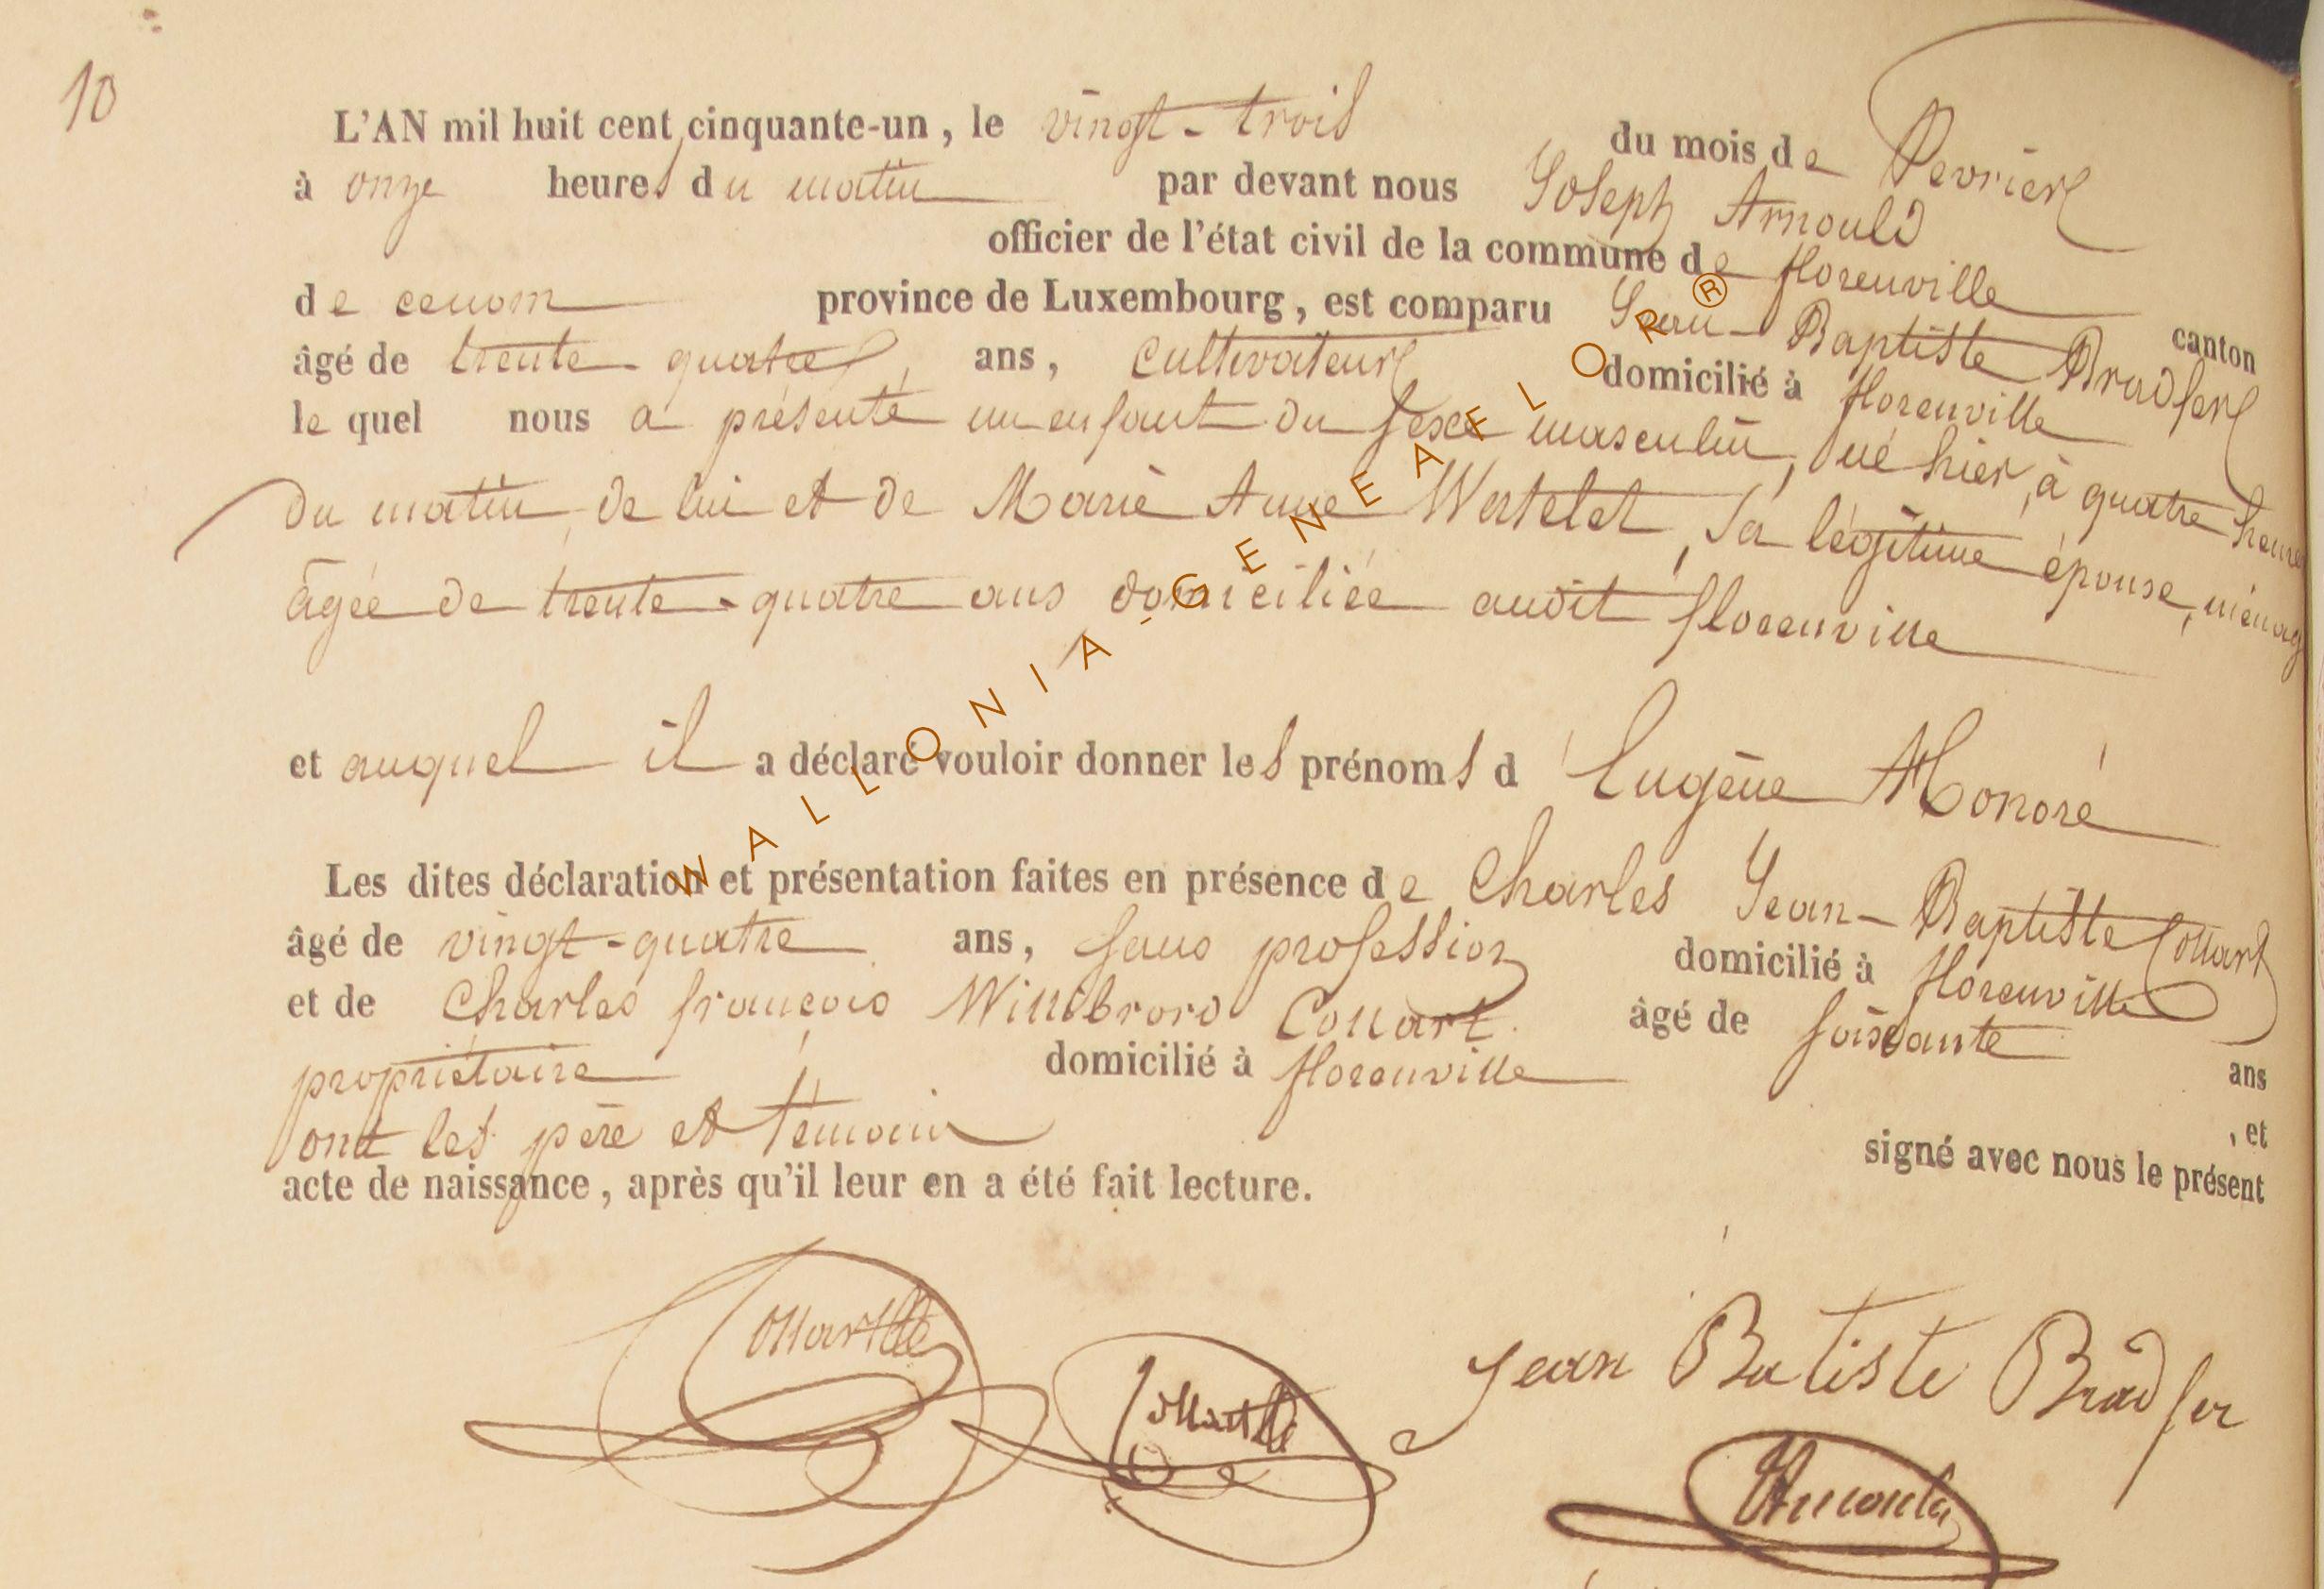 10
L'AN mil huit cent cinquante-un, le vingt-trois du mois de Fevrier
à onze heures du matin par devant nous Joseph Arnould
officier de l'état civil de la commune de florenville canton
de cenom province de Luxembourg, est comparu Jean-Baptiste Bradfer
âgé de trente-quatre ans, cultivateur domicilié à florenville
le quel nous a présenté un enfant du sexe masculin, né hier, à quatre heures
du matin, de lui et de Marie Anne Watelet, sa légitime épouse, ménag
âgée de trente-quatre ans domiciliée audit florenville
et auquel il a déclaré vouloir donner les prénoms d Eugène Honoré
Les dites déclaration et présentation faites en présence de Charles Jean-Baptiste Collart
âgé de vingt-quatre ans, sans profession domicilié à florenville
et de Charles françois Willibrord Collart âgé de soixante ans
propriétaire domicilié à florenville , et
ont les père et témoin signé avec nous le présent
acte de naissance, après qu'il leur en a été fait lecture.
Collart
Collart
Jean Batiste Bradfer
Arnould
WALLONIA-GENEAFLOR®